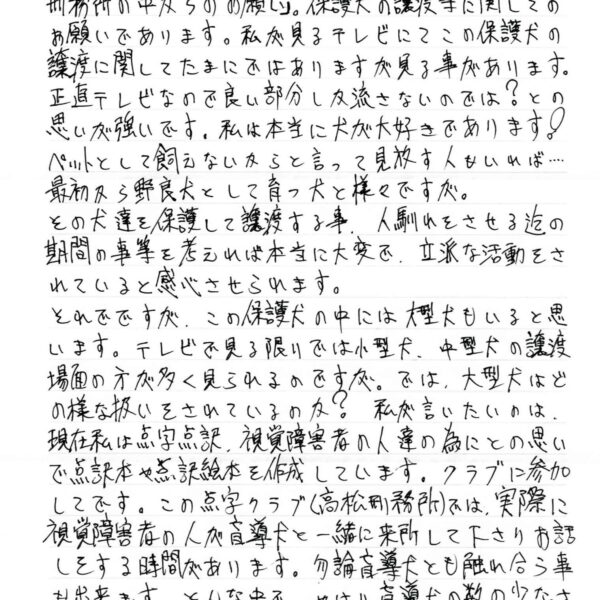 刑務所の中からのお願い」。保護犬の譲渡等に関しての
お願いであります。私が見るテレビにてこの保護犬の
譲渡に関してたまにではありますが見る事があります。
正直テレビなので良い部分しか流さないのでは?との
思いが強いです。私は本当に犬が大好きであります!
ペットとして飼えないからと言って見放す人もいれば‥‥
最初から野良犬として育つ犬と様々ですが。
その犬達を保護して譲渡する事、人馴れをさせる迄の
期間の事等を考えれば本当に大変で、立派な活動をさ
れていると感心させられます。
それでですが、この保護犬の中には大型犬もいると思
います。テレビで見る限りでは小型犬、中型犬の譲渡
場面の方が多く見られるのですが。では、大型犬はど
の様な扱いをされているのか? 私が言いたいのは、
現在私は点字点訳、視覚障害者の人達の為にとの思い
で点訳本や点訳絵本を作成しています。クラブに参加
してです。この点字クラブ(高松刑務所)では、実際に
視覚障害者の人が盲導犬と一緒に来所して下さりお話
しをする時間があります。勿論盲導犬とも触れ合う事
も出来ます。そんな中で、やはり盲導犬の数の少なさ